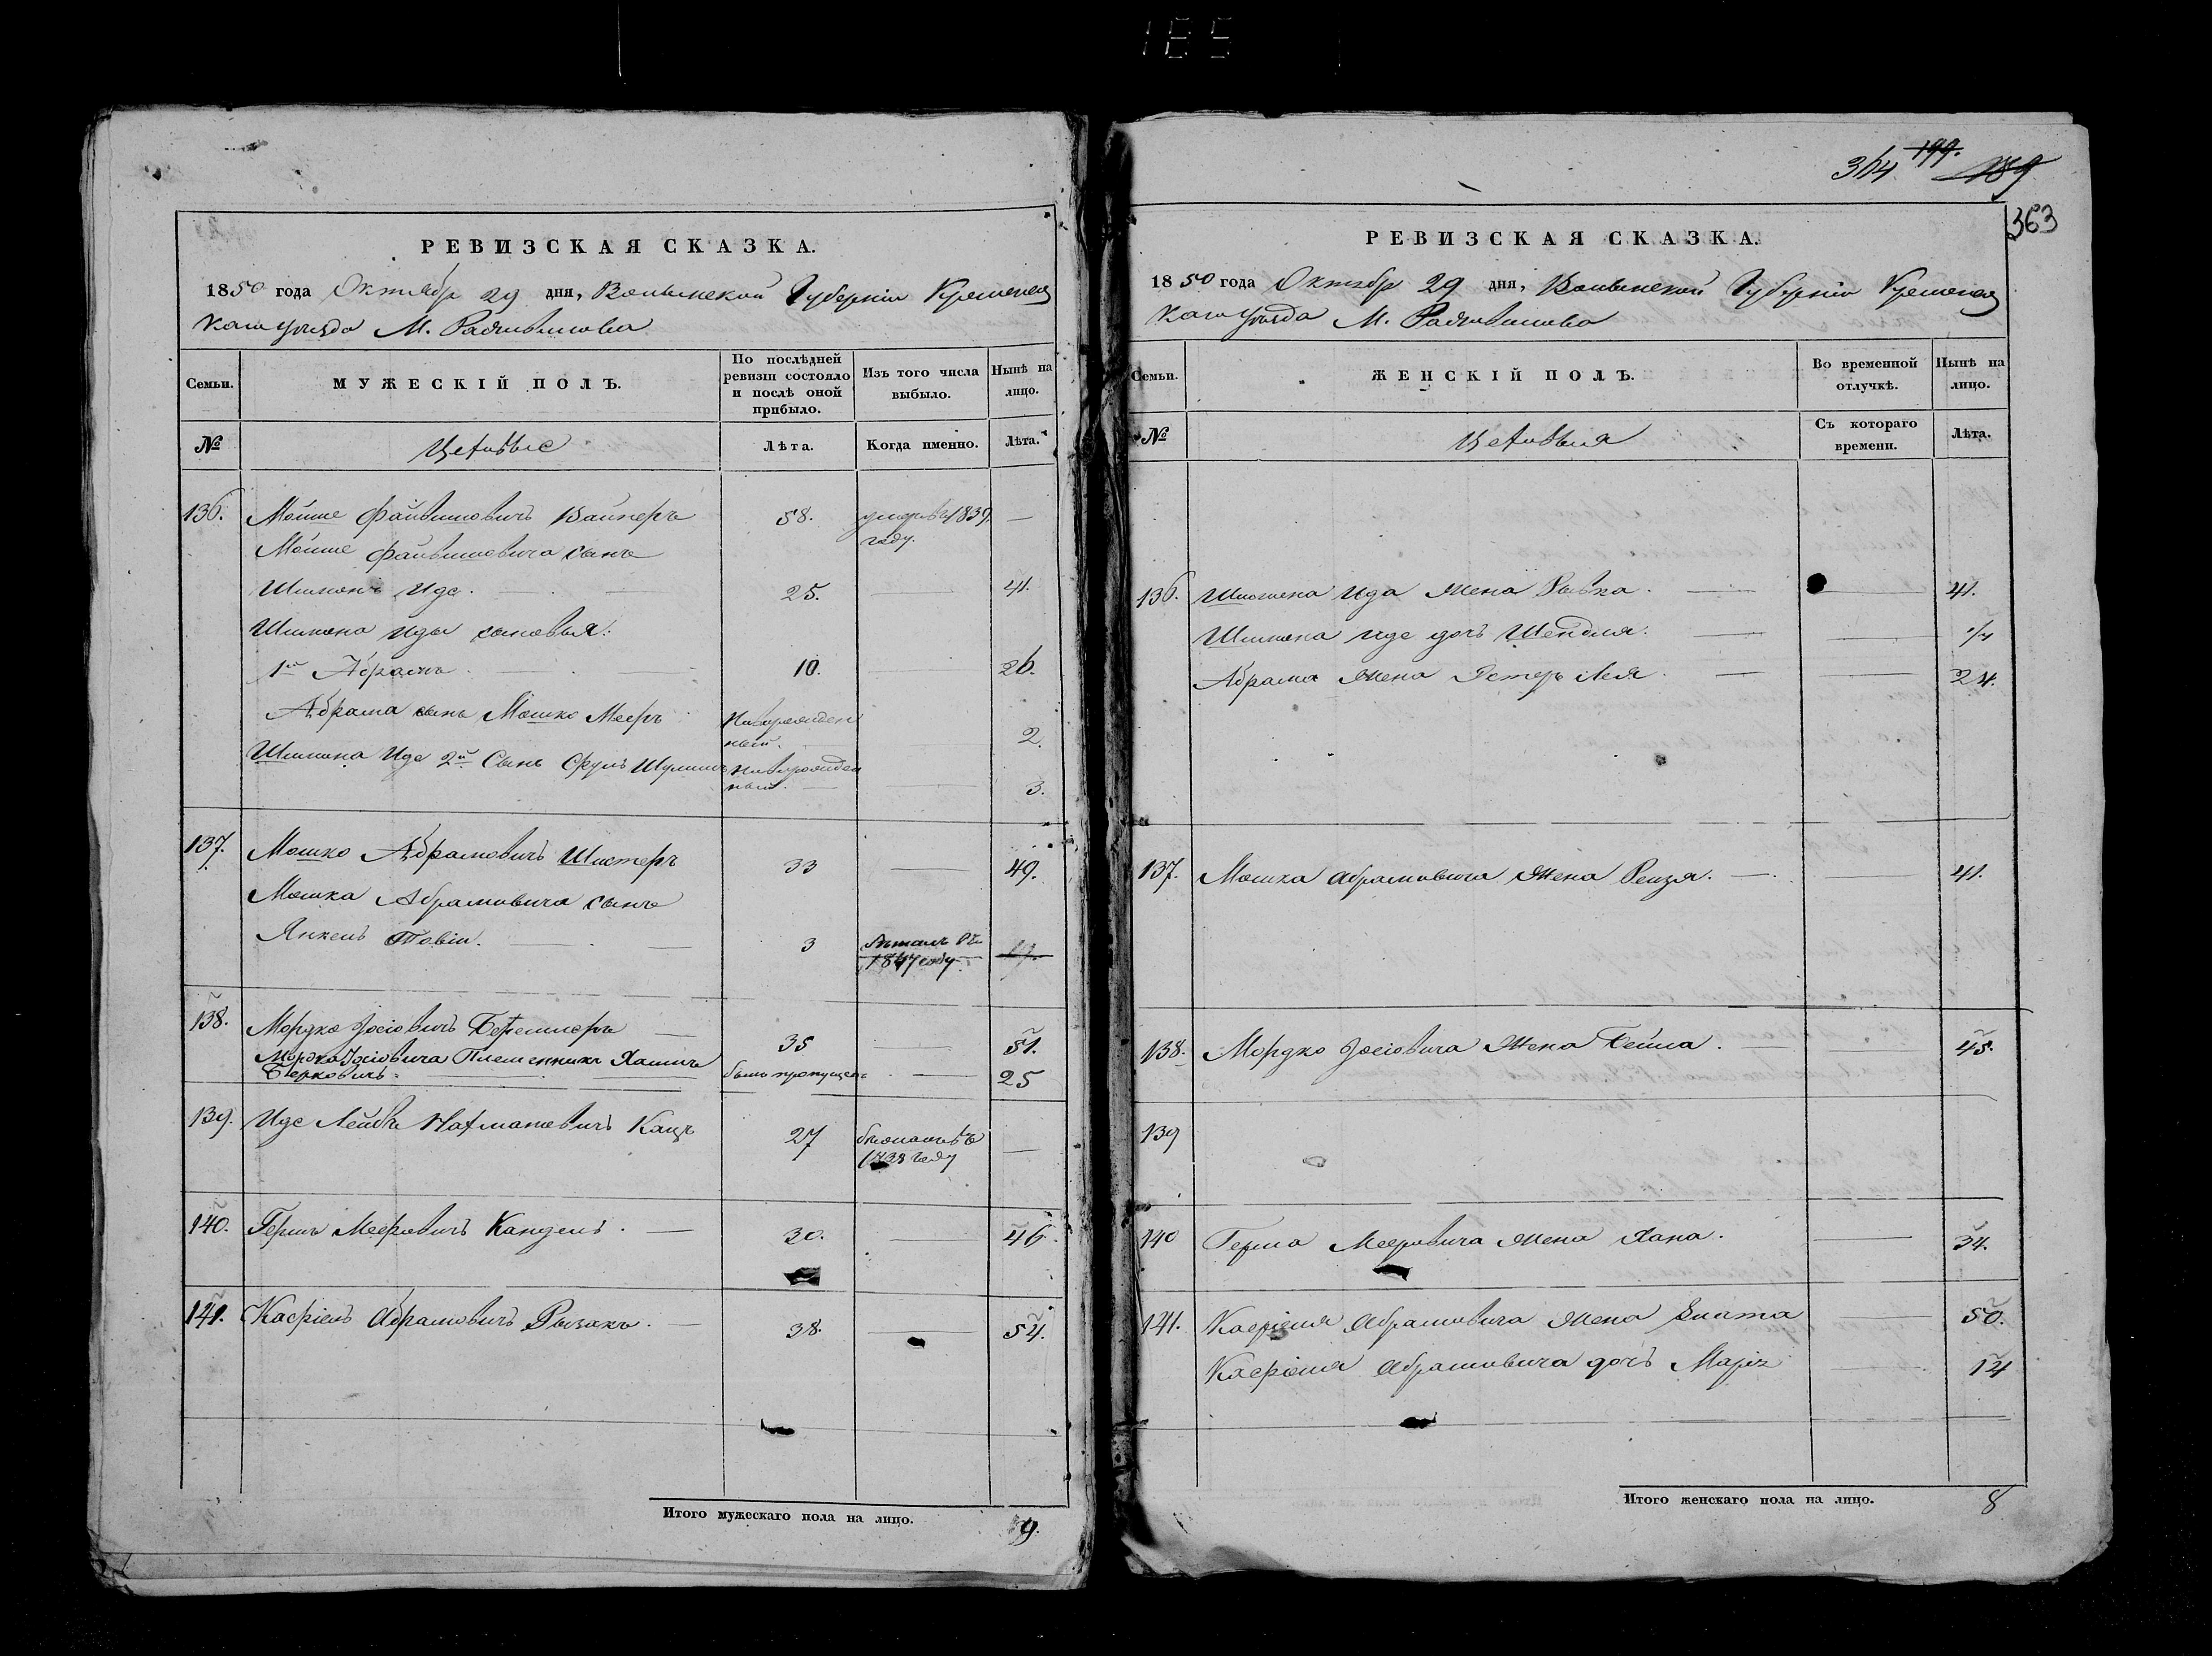 185
РЕВИЗСКАЯ СКАЗКА.
1850 года Октября 29 дня, Волынской Губерніи Кременец
каго уѣзда М. Радзивилова
Семьи.
МУЖЕСКІЙ ПОЛЪ.
По послѣдней ревизіи состояло и послѣ оной прибыло.
Изъ того числа выбыло.
Нынѣ на лицо.
№
Лѣта.
Когда именно.
Лѣта.
136. Мошко Файвишовичъ Вайнеръ 58. умеръ въ 1839 году. —
Мошко Файвишовича сынъ
Шимонъ Иде. 25. 41.
Шимона Иды сыновья:
1й Абрамъ 10. 26.
Абрама сынъ Мошко Мееръ новорожден ный. 2.
Шимона Иде 2й Сынъ Сруль новорожден ный. 3.
137. Мошко Абрамовичъ Шистеръ 33 49.
Мошка Абрамовича сынъ
Янкель Товіи. 3 1847 году.
138. Мордко Іосіовичъ 35 51.
Мордка Іосіовича Племенникъ Хаимъ
Берковичъ былъ пропущен 25
139. Иде Лейба Нахмановичъ Кацъ 27 1838 году —
140. Гершъ Мееровичъ Кандель. 30. 46.
141. Касріель Абрамовичъ Рызакъ. 38. 54.
Итого мужескаго пола на лицо. 9.
364 199. 189
363
РЕВИЗСКАЯ СКАЗКА.
1850 года Октябр 29 дня, Волынской Губерніи Кременец
каго уѣзда М. Радзивилова
Семьи.
ЖЕНСКІЙ ПОЛЪ.
Во временной отлучкѣ.
Нынѣ на лицо.
№
Съ котораго времени.
Лѣта.
136. Шимона Ида жена Рывка. 41.
Шимона Иде дочь Шендля.
Абрама жена Эстеръ Лея 24.
137. Мошка Абрамовича жена Рейзя. 41.
138. Мордко Іосіовича жена Бейла. 45.
139
140 Герша Мееровича жена Хана. 34.
141. Касріеля Абрамовича жена Злата 50.
Касріеля Абрамовича дочь 14
Итого женскаго пола на лицо. 8